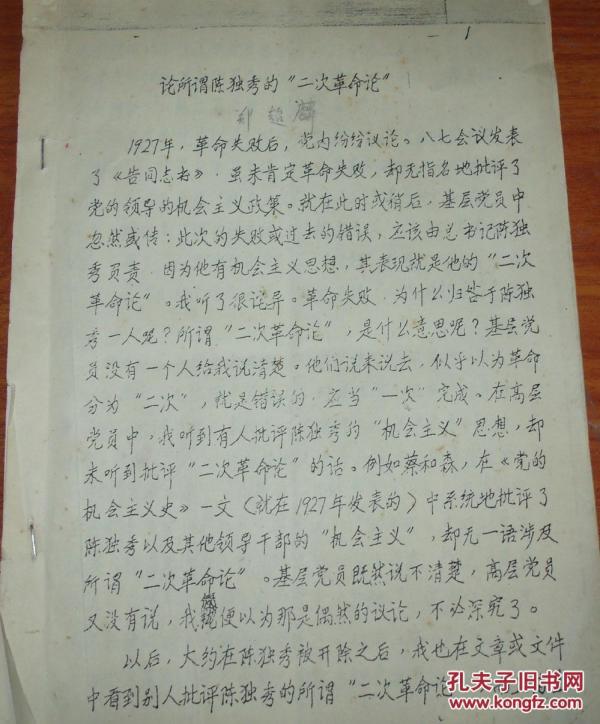 1
论所谓陈独秀的“二次革命论”
郑超麟
1927年，革命失败后，党内纷纷议论。八七会议发表
了《告同志书》，虽未肯定革命失败，却无指名地批评了
党的领导的机会主义政策。就在此时或稍后，基层党员中
忽然盛传：此次的失败或过去的错误，应该由总书记陈独
秀负责，因为他有机会主义思想，其表现就是他的“二次
革命论”。我听了很诧异。革命失败，为什么归咎于陈独
秀一人呢？所谓“二次革命论”，是什么意思呢？基层党
员没有一个人给我说清楚。他们说来说去，似乎以为革命
分为“二次”，就是错误的，应当“一次”完成。在高层
党员中，我听到有人批评陈独秀的“机会主义”思想，却
未听到批评“二次革命论”的话。例如蔡和森，在《党的
机会主义史》一文（就在1927年发表的）中系统地批评了
陈独秀以及其他领导干部的“机会主义”，却无一语涉及
所谓“二次革命论”。基层党员既然说不清楚，高层党员
又没有说，我便以为那是偶然的议论，不必深究了。
以后，大约在陈独秀被开除之后，我也在文章或文件
中看到别人批评陈独秀的所谓“二次革命论
孔夫子旧书网
www.kongfz.com